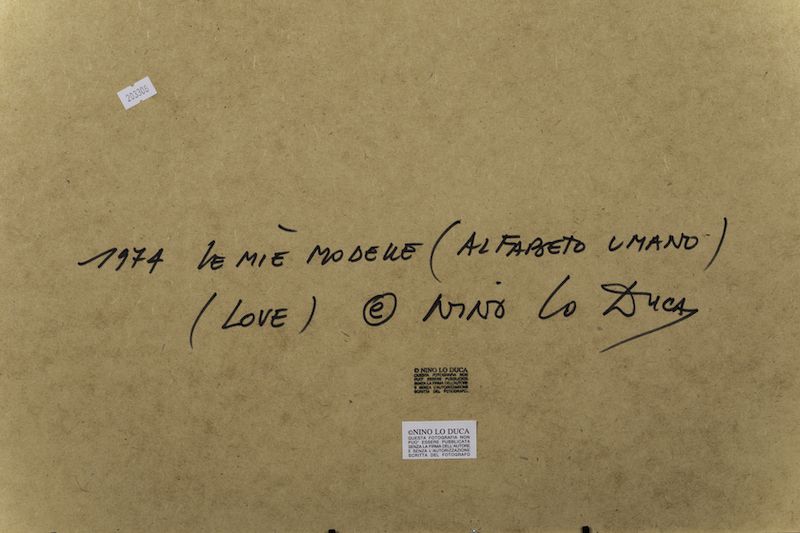 203305
1974 Le MIÈ MODELLE (ALFABETO UMANO)
(LOVE) © NINO LO DUCA
© NINO LO DUCA
QUESTA FOTOGRAFIA NON
PUO' ESSERE PUBBLICATA
SENZA LA FIRMA DELL'AUTORE
E SENZA L'AUTORIZZAZIONE
SCRITTA DEL FOTOGRAFO.
©NINO LO DUCA
QUESTA FOTOGRAFIA NON
PUO' ESSERE PUBBLICATA
SENZA LA FIRMA DELL'AUTORE
E SENZA L'AUTORIZZAZIONE
SCRITTA DEL FOTOGRAFO